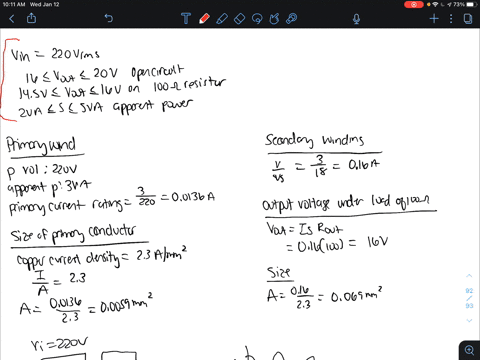 10:11 AM Wed Jan 12
73%
Vin = 220Vrms
16 ≤ Vout ≤ 20V Opencircuit
14.5V ≤ Vout ≤ 16V on 100Ω resistor
2VA ≤ S ≤ 5VA apparent power
Primary wind
p vol : 220V
apparent p: 3VA
primary current rating = 3/220 = 0.0136 A
Size of primary conductor
copper current density = 2.3 A/mm²
I/A = 2.3
A = 0.0136/2.3 = 0.0059mm²
Vi = 220V
Secondary windings
V/Vs = 3/18 = 0.16A
output voltage under load of 100Ω
Vout = Is Rout
= 0.16(100) = 16V
Size
A = 0.16/2.3 = 0.069mm²
92
/
93